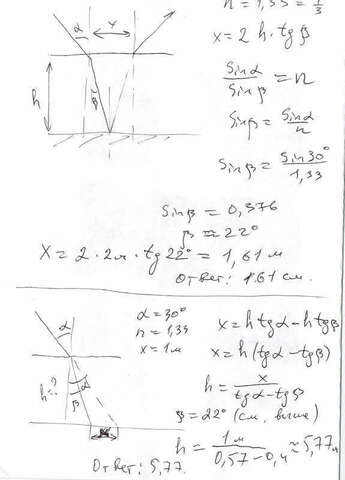 n = 1,33 = 4/3
α
x
h
β
x = 2 h · tg β
sinα / sinβ = n
sinβ = sinα / n
sinβ = sin30° / 1,33
sinβ = 0,376
β ≈ 22°
x = 2 · 2м · tg 22° = 1,61 м
Ответ: 1.61 см.
α
h=?
β α
x
α = 30°
n = 1,33
x = 1м
x = h tgα - h tgβ
x = h (tgα - tgβ)
h = x / tgα - tgβ
β = 22° (см. выше)
h = 1м / 0,57 - 0,4 ≈ 5,77 м
Ответ: 5,77.